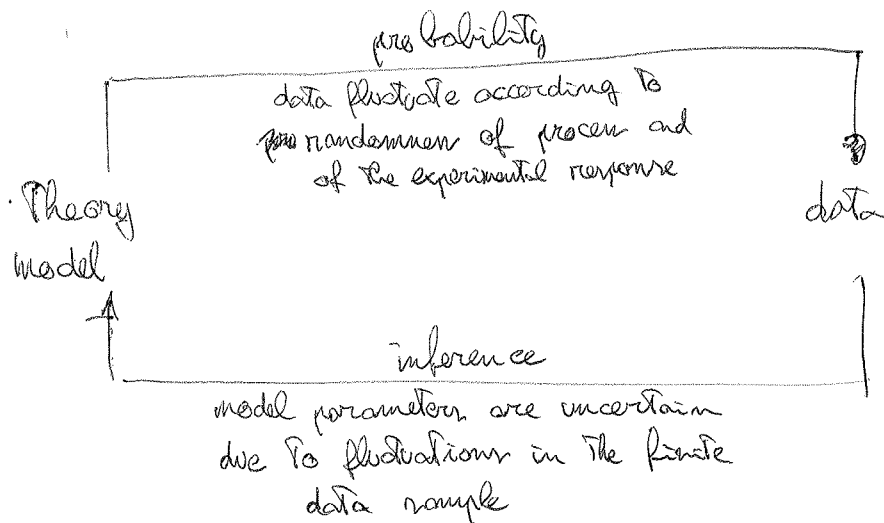 probability
data fluctuate according to
randomness of process and
of the experimental response
Theory
model
data
inference
model parameters are uncertain
due to fluctuations in the finite
data sample